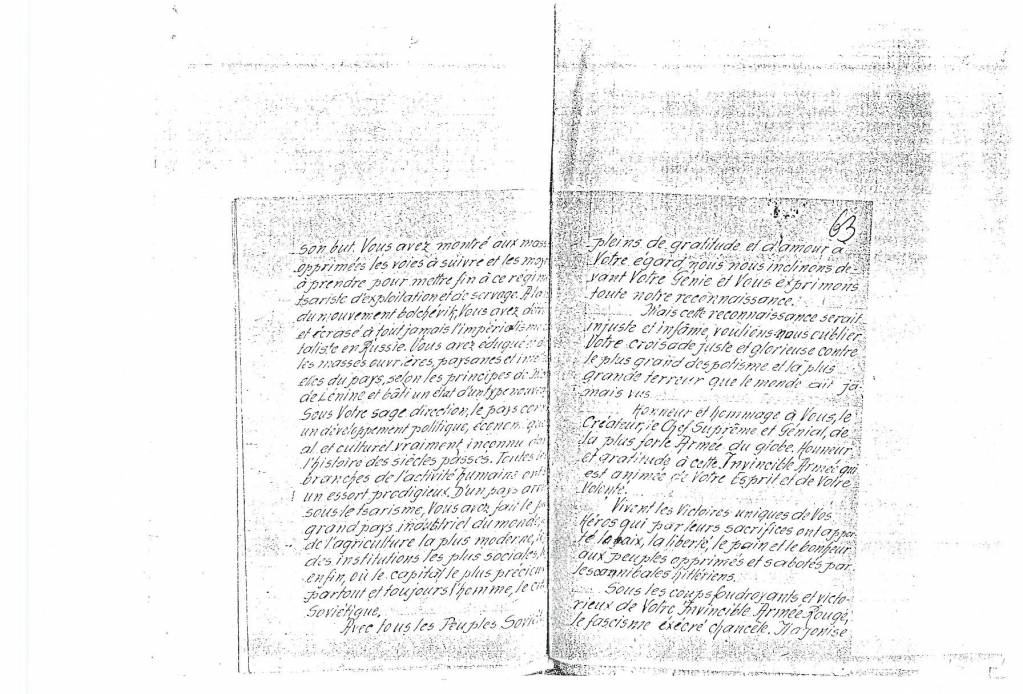 son but. Vous avez montré aux mass
opprimées les voies à suivre et les moy
à prendre pour mettre fin à ce régim
tsariste d'exploitation et de servage. A la
du mouvement bolchévik, Vous avez
et écrasé à tout jamais l'impérialisme
taliste en Russie. Vous avez éduqué
les masses ouvrières, paysanes et
elles du pays, selon les principes de
de Lénine et bâti un état d'un type nouve
Sous Votre sage direction, le pays
un développement politique, économique
al et culturel vraiment inconnu
l'histoire des siècles passés. Toutes
branches de l'activité humaine ont
un essort prodigieux. D'un pays
sous le tsarisme, Vous avez fait le
grand pays industriel du monde,
de l'agriculture la plus moderne,
des institutions les plus sociales,
enfin, où le capital le plus précieux
partout et toujours l'homme, le
Soviétique.
Avec tous les Peuples Sovié
63
pleins de gratitude et d'amour à
Votre égard, nous nous inclinons de-
vant Votre Génie et Vous exprimons
toute notre reconnaissance.
Mais cette reconnaissance serait
injuste et infâme, voulions nous oublier
Votre croisade juste et glorieuse contre
le plus grand despotisme et la plus
grande terreur que le monde ait ja-
mais vus
Honneur et hommage à Vous, le
Créateur, le Chef Suprême et Génial, de
la plus forte Armée du globe. Honneur
et gratitude à cette Invincible Armée qui
est animée de Votre Esprit et de Votre
Volonté.
Vivent les Victoires uniques de Vos
Héros qui par leurs sacrifices ont appor-
té la paix, la liberté, le pain et le bonheur
aux peuples opprimés et sabotés par
les cannibales hitlériens.
Sous les coups foudroyants et victo-
rieux de Votre Invincible Armée Rouge,
le fascisme exécré chancèle. Il agonise